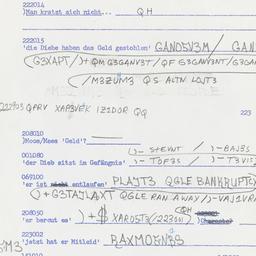 222014
)Man kratzt sich nicht... QH
222015
'die Diebe haben das Geld gestohlen' GANO5V3M / GAN
(G3XAPT/)+QMG3GANV3T/QF G3GANV3NT/G3GAN
/M3ZUM3 QS ALTN LOJT3
222903 QPRV XAP3VEK IZ1DOR QQ 223
208010
)Moos/Mees 'Geld'?
001080 )- STEVNT / )- BAJ3S
'der Dieb sitzt im Gefängnis' )- TDF3S / )- T3VIS
069100
'er ist entlaufen' PLAJT3 QGLE BANKRUPT
)+G3TAJLAXT QGLE RAN AWAY/)-VAJ1VR
208050 (QH
'er beraubt es' )+$ XAROST3/22301)
223002
'jetzt hat er Mitleid' RAXMOENB3